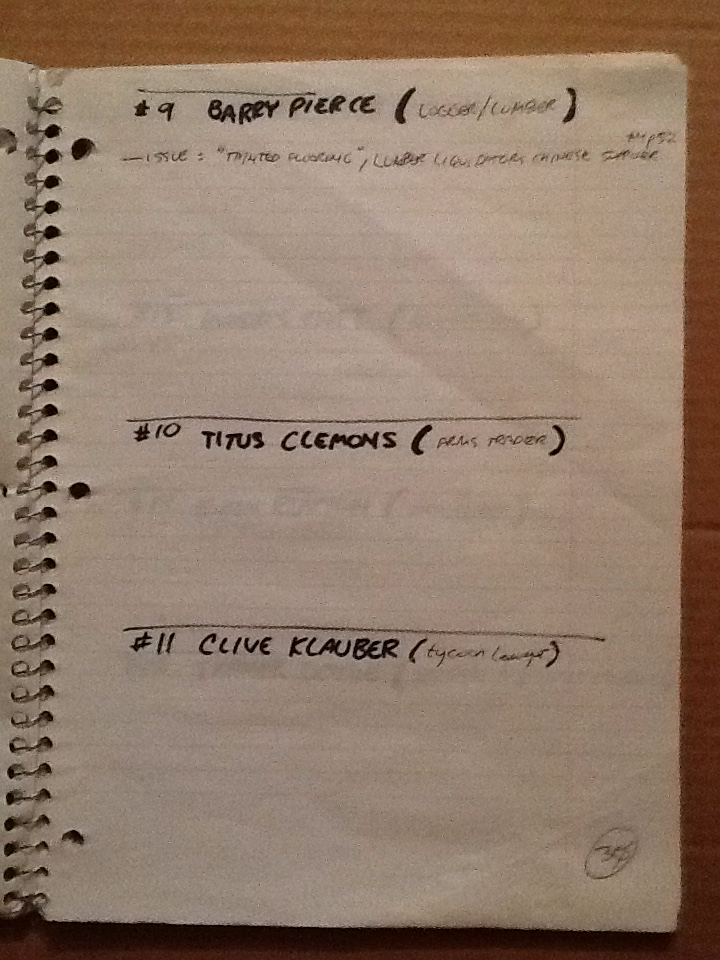 #9 BARRY PIERCE (LOGGER/LUMBER)
— ISSUE: "TAINTED FLOORING", LUMBER LIQUIDATORS CHINESE
#10 TITUS CLEMONS (ARMS TRADER)
#11 CLIVE KLAUBER (tycoon lawyer)